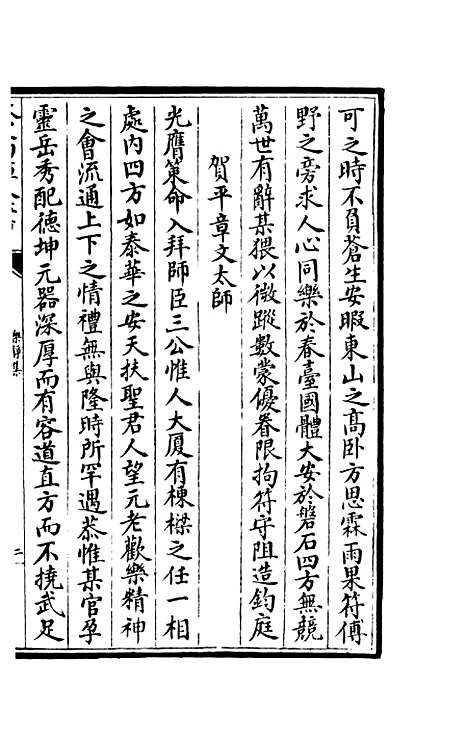 可之時不負蒼生安暇東山之高卧方思霖雨果符傅
野之旁求人心同樂於春臺國體大安於磐石四方無競
萬世有辭某猥以微蹤數蒙優眷限拘符守阻造鈞庭
賀平章文太師
光膺策命入拜師臣三公惟人大厦有棟樑之任一相
處内四方如泰華之安天扶聖君人望元老歡樂精神
之會流通上下之情禮無與隆時所罕遇恭惟某官孕
靈岳秀配德坤元器深厚而有容道直方而不撓武足
二